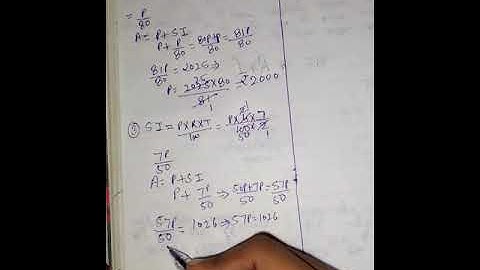 = P/80
A = P + SI
P + P/80 = 80P+P/80 = 81P/80
81P/80 = 2025 ⇒
P = 2025 × 80/81 = ₹2000
③ SI = P×R×T/100 = P××7/100×2
50
7P/50
A = P + SI
P + 7P/50 ⇒ 50P+7P/50 = 57P/50
57P/50 = 1026 ⇒ 57P = 1026